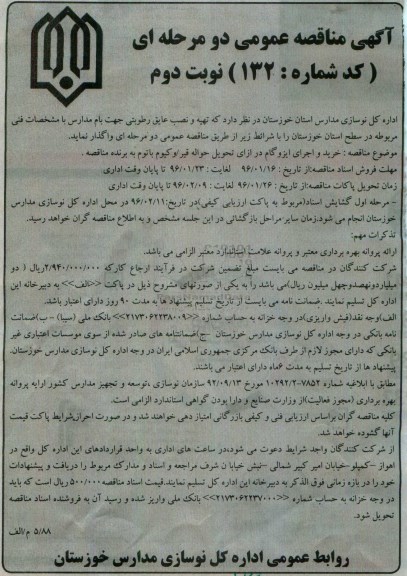 آگهی مناقصه عمومی دو مرحله ای
( کد شماره : ۱۳۲ ) نوبت دوم
اداره کل نوسازی مدارس استان خوزستان در نظر دارد که تهیه و نصب عایق رطوبتی جهت بام مدارس با مشخصات فنی
مربوطه در سطح استان خوزستان را با شرائط زیر از طریق مناقصه عمومی دو مرحله ای واگذار نماید.
موضوع مناقصه : خرید و اجرای ایزوگام در ازای تحویل حواله قیر/وکیوم باتوم به برنده مناقصه .
مهلت فروش اسناد مناقصه:از تاریخ : ۹۶/۰۱/۱۶ لغایت : ۹۶/۰۱/۲۳ تا پایان وقت اداری
زمان تحویل پاکات مناقصه:از تاریخ : ۹۶/۰۱/۲۶ لغایت : ۹۶/۰۲/۰۹ تا پایان وقت اداری
- مرحله اول گشایش اسناد(مربوط به پاکت ارزیابی کیفی)در تاریخ:۹۶/۰۲/۱۱ در محل اداره کل نوسازی مدارس
خوزستان انجام می شود.زمان سایر مراحل بازگشائی در این جلسه مشخص و به اطلاع مناقصه گران خواهد رسید.
تذکرات مهم:
ارائه پروانه بهره برداری معتبر و پروانه علامت استاندارد معتبر الزامی می باشد.
شرکت کنندگان در مناقصه می بایست مبلغ تضمین شرکت در فرآیند ارجاع کارکه ۲/۹۴۰/۰۰۰/۰۰۰ریال ( دو
میلیاردونهصدوچهل میلیون ریال)می باشد را به یکی از صورتهای مشروح ذیل در پاکت <<الف>> به دبیرخانه این
اداره کل تسلیم نمایند .ضمانت نامه می بایست از تاریخ تسلیم پیشنهاد ها به مدت ۹۰ روز دارای اعتبار باشد.
الف)وجه نقد(فیش واریزی)در وجه خزانه به حساب شماره <<۲۱۷۳۰۶۲۲۳۸۰۰۹>> بانک ملی (سیبا) -ب)ضمانت
نامه بانکی در وجه اداره کل نوسازی مدارس خوزستان -ج)ضمانتنامه های صادر شده از سوی موسسات اعتباری غیر
بانکی که دارای مجوز لازم از طرف بانک مرکزی جمهوری اسلامی ایران در وجه اداره کل نوسازی مدارس خوزستان.
پیشنهاد ها از تاریخ تسلیم به مدت ماه دارای اعتبار می باشند.
مطابق با ابلاغیه شماره ۱۰۲۹۲/۲-۷۸۵۲ مورخ ۹۲/۰۹/۱۳ سازمان نوسازی ،توسعه و تجهیز مدارس کشور ارایه پروانه
بهره برداری (مجوز فعالیت)از وزارت صنایع و دارا بودن گواهی استاندارد الزامی است.
کلیه مناقصه گران براساس ارزیابی فنی و کیفی بازرگانی امتیاز دهی خواهند شد و در صورت احرازشرایط پاکت قیمت
آنها گشوده خواهد شد.
از شرکت کنندگان واجد شرایط دعوت می شود،در ساعت های اداری به واحد قراردادهای این اداره کل واقع در
اهواز -کمپلو -خیابان امیر کبیر شمالی -نبش خیابان شرف مراجعه و اسناد و مدارک مربوط را دریافت و پیشنهادات
خود را در بازه زمانی فوق الذکر به دبیرخانه این اداره کل تسلیم نمایند.قیمت اسناد مناقصه۵۰۰/۰۰۰ریال است که باید
در وجه خزانه به حساب شماره <<۲۱۷۳۰۶۲۲۳۷۰۰۰>> بانک ملی واریز شده و رسید آن به فروشنده اسناد مناقصه
تحویل شود.
۵/۸۸ م/الف
روابط عمومی اداره کل نوسازی مدارس خوزستان